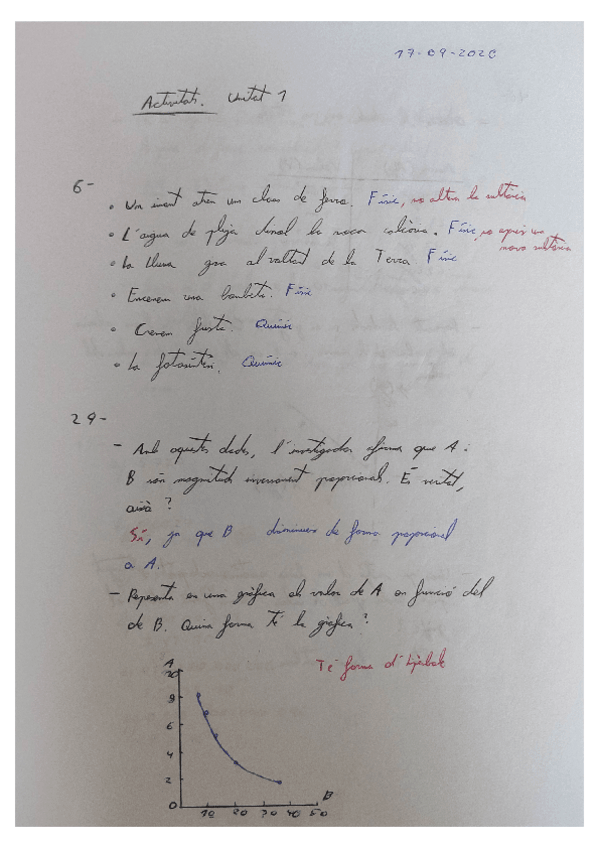 17-09-2020
Activitats. Unitat 1
6-
• Un imant atreu un clau de ferro. Físic, no altera la substància
• L'aigua de pluja disol la roca calcària. Físic, no apareix una nova substància
• La Lluna gira al voltant de la Terra. Físic
• Encenem una bombeta. Físic
• Cremem fusta. Químic
• La fotosíntesi. Químic
29-
- Amb aquestes dades, l'investigador afirma que A i
B són magnituds inversament proporcionals. És veritat,
això?
Sí, ja que B disminueix de forma proporcional
a A.
- Representa en una gràfica els valors de A en funció dels
de B. Quina forma té la gràfica?
Té forma d'hipèrbole
A
10
8
6
4
2
0
10 20 30 40 50
B